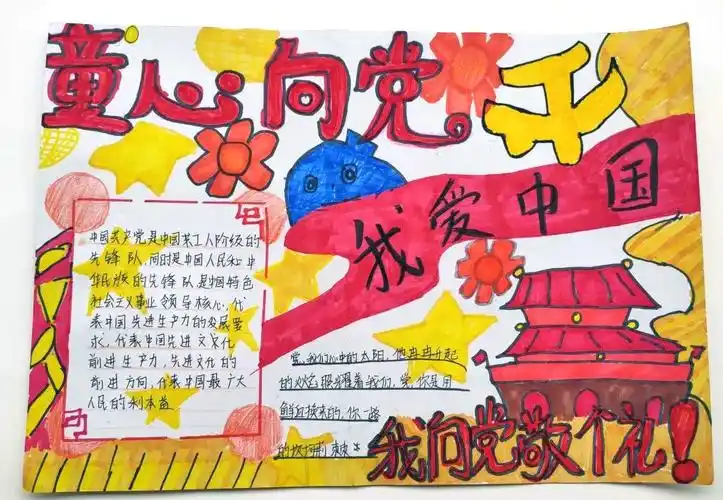 童心向党
我爱中国
中国共产党是中国工人阶级的
先锋队,同时是中国人民和中
华民族的先锋队是中国特色
社会主义事业领导核心,代
表中国先进生产力的发展要
求,代表中国先进文化
前进生产力,先进文化的
前进方向,代表中国最广大
人民的利本益
党,我们心中的太阳,他冉冉升起
的火焰照耀着我们,党,你是用
鲜血换来的,你一路
我向党敬个礼!